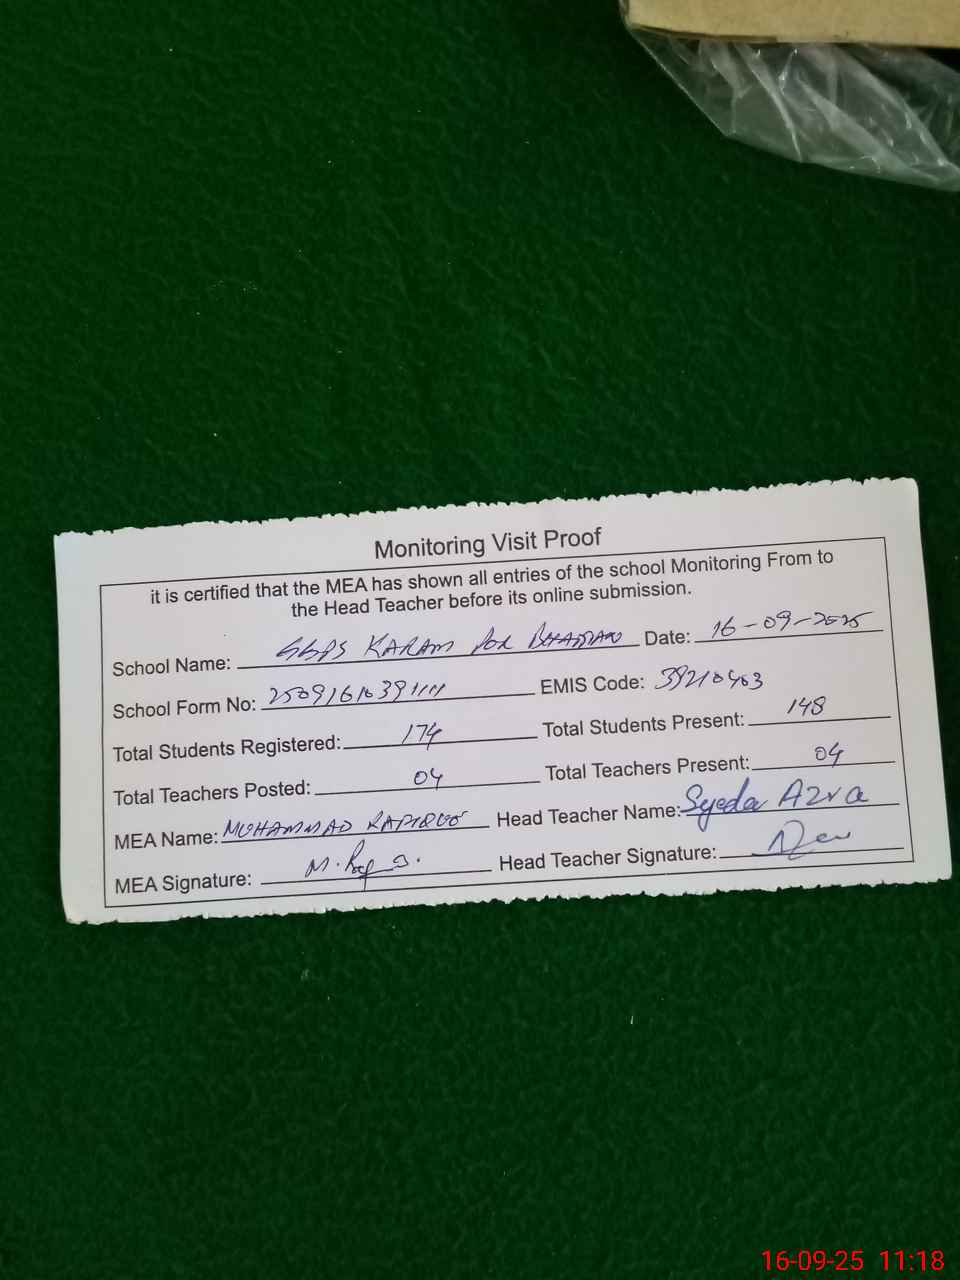 Monitoring Visit Proof
it is certified that the MEA has shown all entries of the school Monitoring From to
the Head Teacher before its online submission.
School Name: GGPS KARAM POR Date: 16-09-2025
School Form No: EMIS Code: 39210403
Total Students Registered: 174 Total Students Present: 148
Total Teachers Posted: 04 Total Teachers Present: 04
MEA Name: MUHAMMAD Head Teacher Name: Syeda Azra
MEA Signature: Head Teacher Signature:
16-09-25 11:18